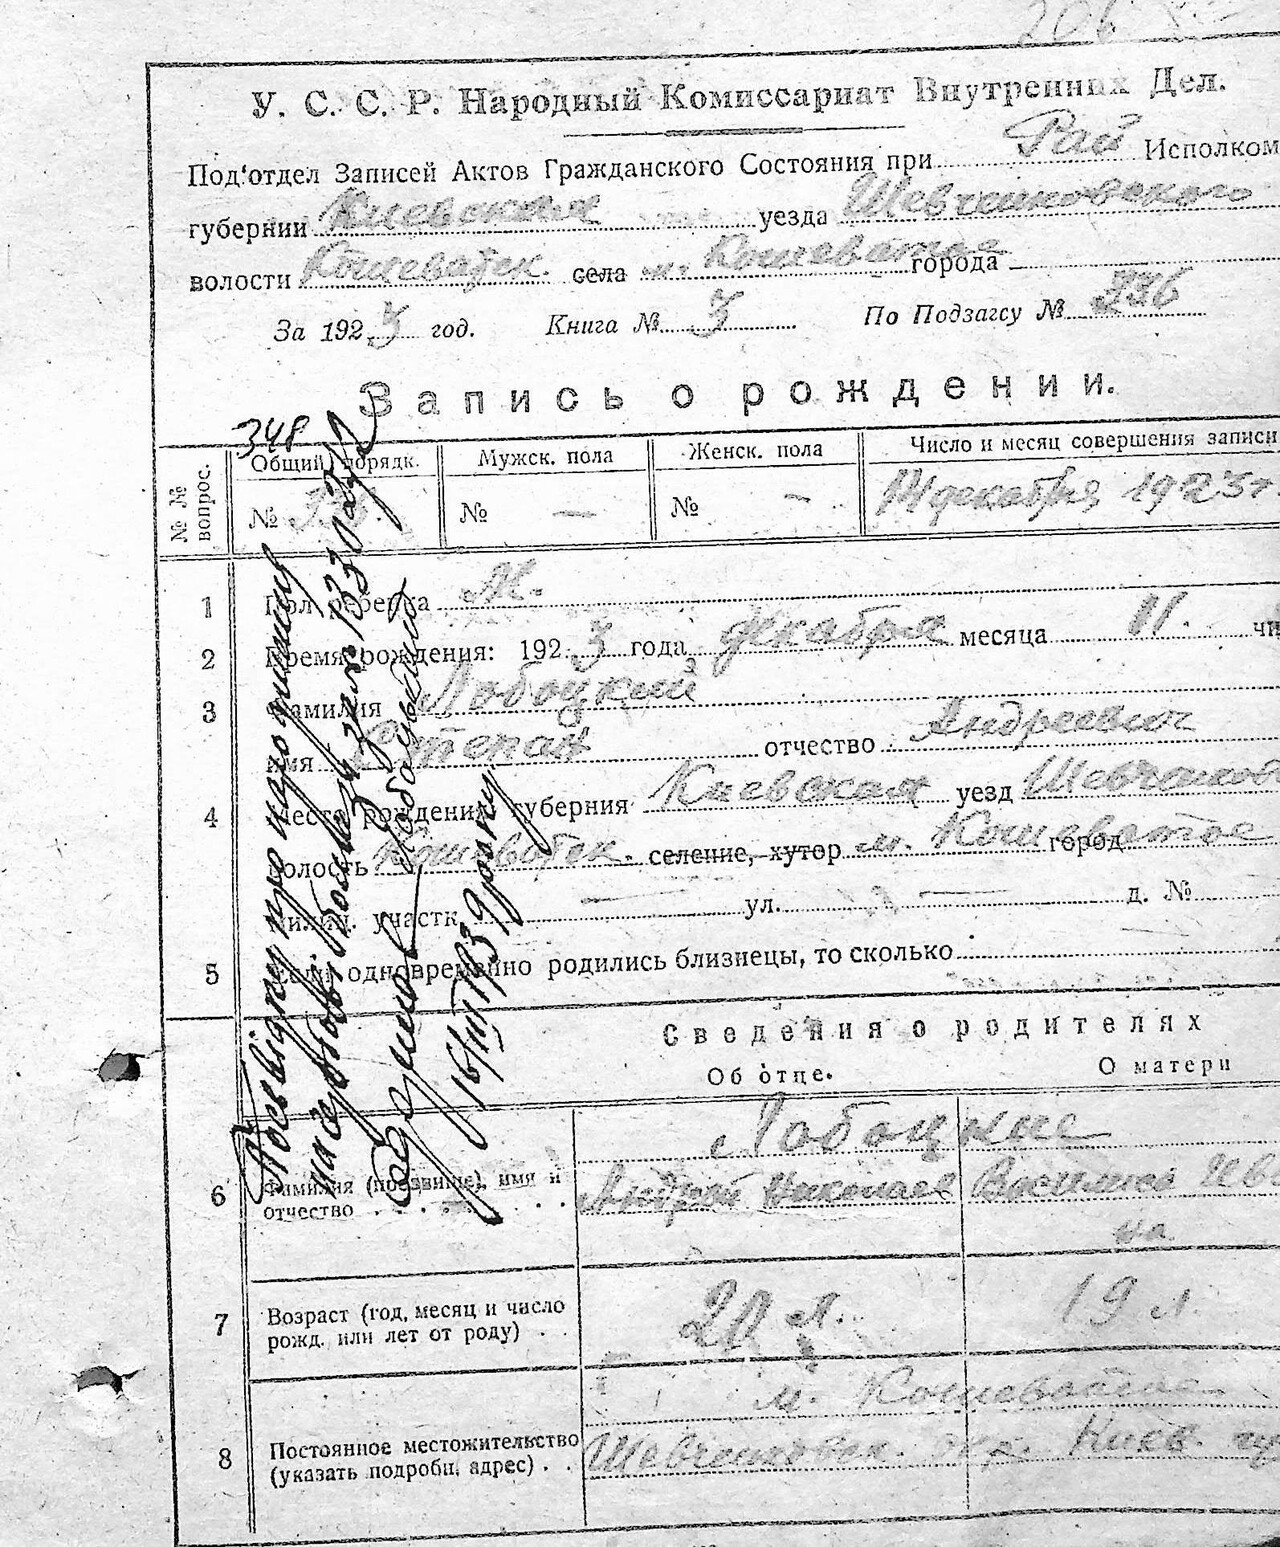 206
У. С. С. Р. Народный Комиссариат Внутренних Дел.
Под'отдел Записей Актов Гражданского Состояния при Рай Исполком
губернии Киевская уезда Шевченковского
волости Кошеватск. села м. Кошеватое города
За 1923 год. Книга № 3 По Подзагсу № 336
Запись о рождении.
348
№№ вопрос.
Общий порядк. Мужск. пола Женск. пола Число и месяц совершения записи
№ № — № — 14 декабря 1923 г
1 Пол ребенка М.
2 Время рождения: 1923 года декабря месяца 11. чи
3 Фамилия Лобоцкий
имя Степан отчество Андреевич
4 Место рождения: губерния Киевская уезд Шевченков
волость Кошеватск. селение, хутор м. Кошеватое город
милиц. участк. — ул. — д. №
5 Если одновременно родились близнецы, то сколько
Довідку про народження
на
16/III 1939 року
Сведения о родителях
Об отце. О матери
Лобоцкие
6 Фамилия (прозвище), имя и Андрей Николаев Василиса Ив
отчество . . . . . на
7 Возраст (год, месяц и число 20 л. 19 л.
рожд. или лет от роду) . .
м. Кошеватое
8 Постоянное местожительство Шевченковск. окр. Киев. гу
(указать подробн. адрес) . .